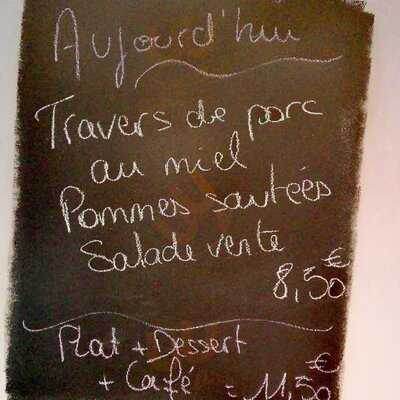 Aujourd'hui
Travers de porc
au miel
Pommes sautées
Salade verte
8,50 €
Plat + Dessert
+ Café = 11,50 €